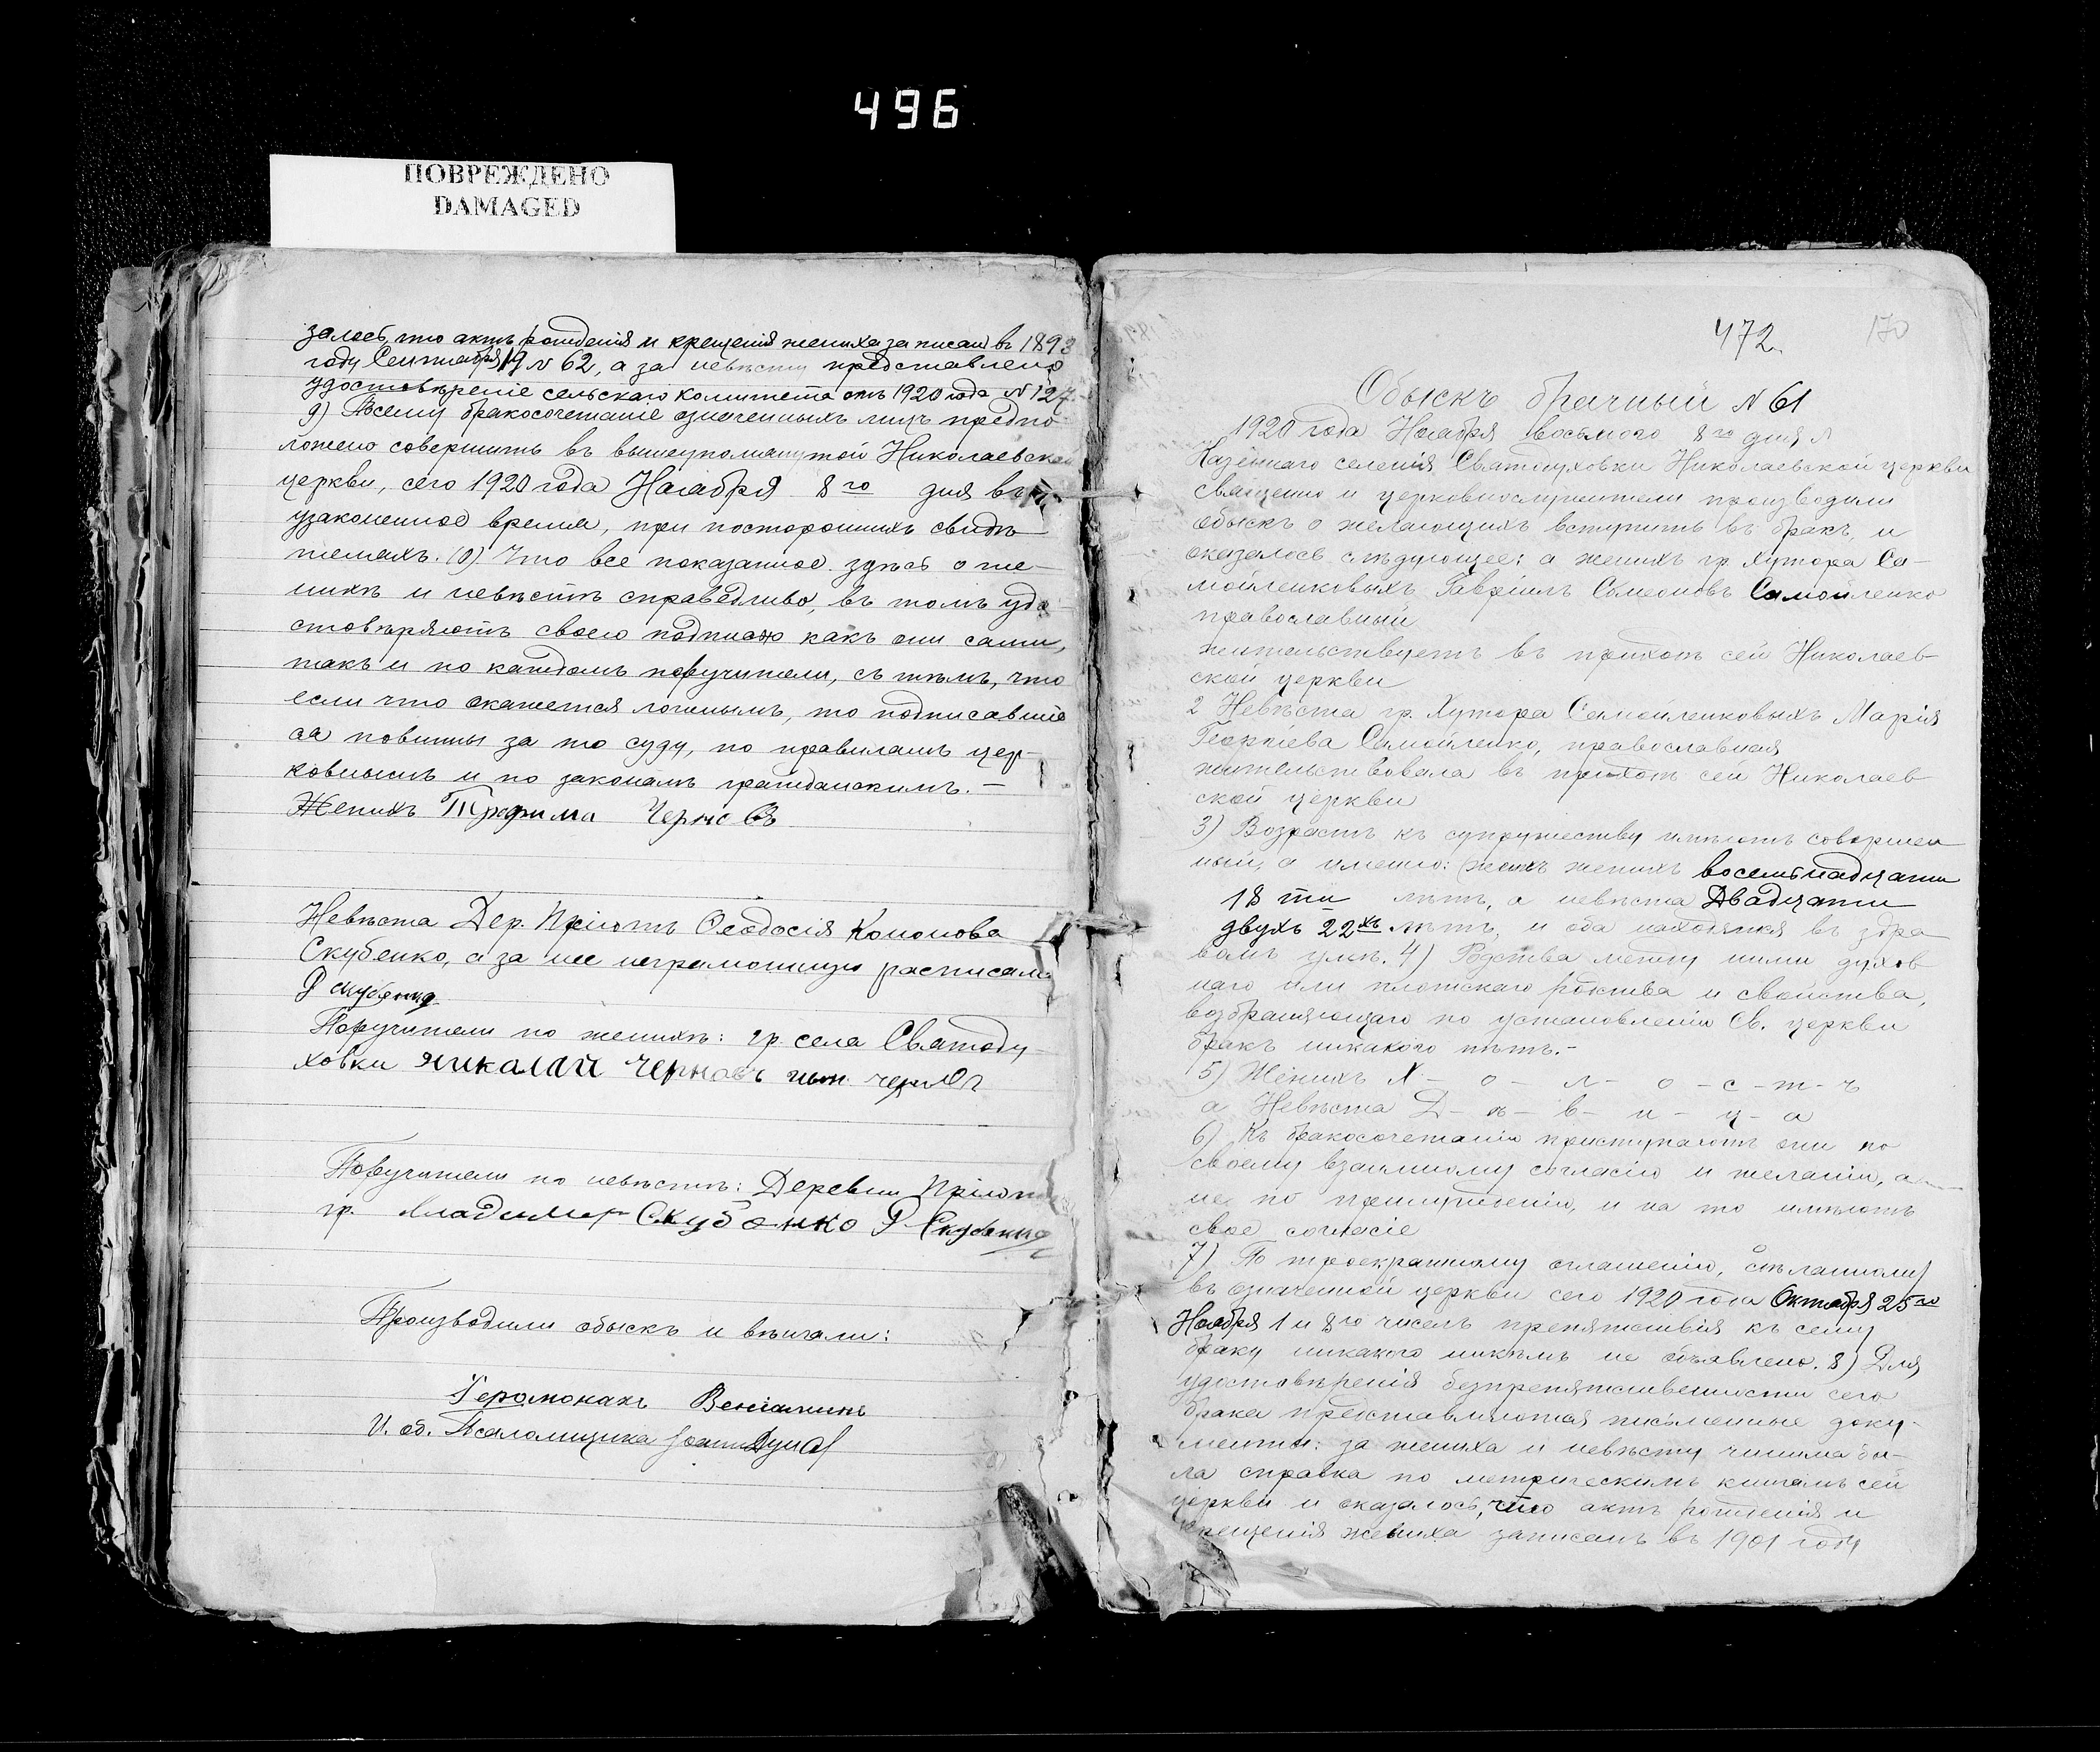 496
ПОВРЕЖДЕНО
DAMAGED
залось, что актъ рожденія и крещенія жениха записан въ 1893
году Сентября 19 N 62, а за невѣсту представлено
удостовѣреніе сельскаго комитета отъ 1920 года N 127.
9) Посему бракосочетаніе означенныхъ лицъ предпо-
ложено совершить въ вышеупомянутой Николаевской
церкви, сего 1920 года Ноября 8го дня въ
узаконенное время, при постороннихъ свидѣ-
теляхъ. 10). Что все показанное здѣсь о же-
нихѣ и невѣстѣ справедливо, въ томъ удо-
стовѣряютъ своею подписью какъ они сами,
такъ и по каждомъ поручители, съ тѣмъ, что
если что окажется ложнымъ, то подписавшіе
ся повинны за то суду, по правиламъ цер-
ковнымъ и по законамъ гражданскимъ. —
Женихъ Трофима Черновъ
Невѣста Дер. Пріютъ Ѳеодосія Кононова
Скубенко, а за нее неграмотную расписался
Поручители по женихѣ: гр. села Святоду-
ховки николай Черновъ
Поручители по невѣстѣ: Деревни Пріютъ
гр. Владимер Скубенко
Производили обыскъ и вѣнчали:
Іеромонахъ Веніаминъ
И. об. Псаломщика Іоаннъ
472
170
Обыскъ брачный N 61
1920 года Ноября восьмого 8го дня
Казённаго селенія Святодуховки Николаевской церкви
священно и церковнослужители производили
обыскъ о желающихъ вступить въ бракъ, и
оказалось слѣдующее: а женихъ гр. Хутора Са-
мойленковыхъ Гавріилъ Симеоновъ Самойленко
православный
жительствуетъ въ приходѣ сей Николаев-
ской церкви
2 Невѣста гр. Хутора Самойленковыхъ Марія
Георгіева Самойленко, православная
жительствовала въ приходѣ сей Николаев
ской церкви
3) Возрастъ къ супружеству имѣютъ совершен
ный, а именно: женихъ восемьнадцати
18 ти лѣтъ, а невѣста Двадцати
двухъ 22хъ лѣтъ, и оба находятся въ здра-
вомъ умѣ. 4) Родства между ними духов
наго или плотскаго родства и свойства,
возбраняющаго по установленію Св. церкви
бракъ никакого нѣтъ. -
5) Женихъ Х - о - л - о - с - т - ъ
а Невѣста Д - ѣ - в - и - ц - а
6) Къ бракосочетанію приступаютъ они по
своему взаимному согласію и желанію, а
не по принужденію, и на то имѣютъ
свое согласіе
7) По троекратному оглашенію, сдѣланному
въ означенной церкви сего 1920 года Октября 25го
Ноября 1 и 8го чиселъ препятствія къ сему
браку никакого никѣмъ не объявлено. 8) Для
удостовѣренія безпрепятственности сего
брака представляются письменные доку-
менты: за жениха и невѣсту чинима бы-
ла справка по метрическимъ книгамъ сей
церкви и оказалось, что актъ рожденія и
крещенія жениха записанъ въ 1901 году